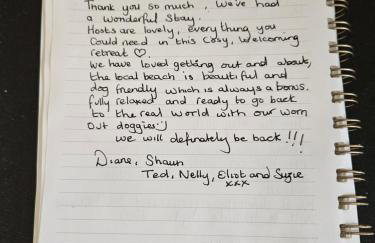 Thank you so much, we've had
a wonderful stay.
Hosts are lovely, everything you
could need in this cosy, welcoming
retreat ♡.
We have loved getting out and about,
the local beach is beautiful and
dog friendly which is always a bonus.
fully relaxed and ready to go back
to the real world with our worn
out doggies :)
we will definately be back !!!
Diane, Shaun
Ted, Nelly, Eliot and Suzie
xxx